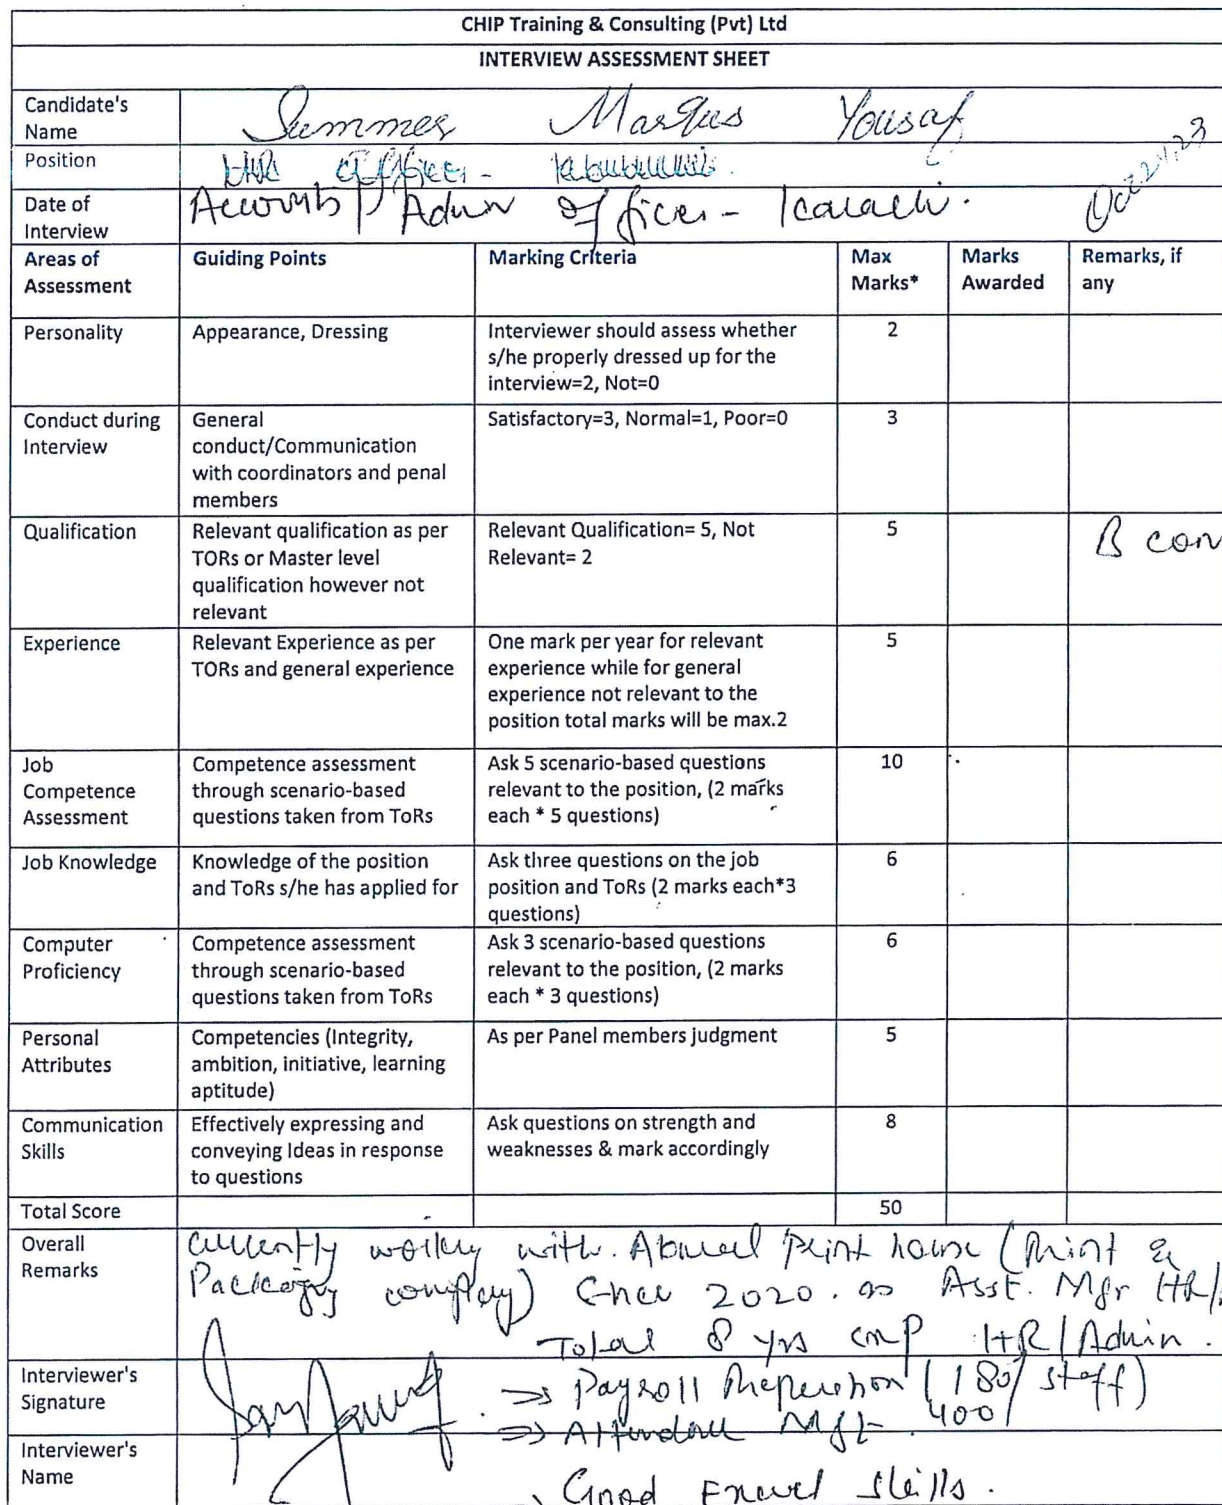 CHIP Training & Consulting (Pvt) Ltd
INTERVIEW ASSESSMENT SHEET
Candidate's Name
Summer Marques Yousaf
Position
HR Officer -
Date of Interview
Accounts / Admin Officer - Karachi.
Oct 24, 23
Areas of Assessment
Guiding Points
Marking Criteria
Max Marks*
Marks Awarded
Remarks, if any
Personality
Appearance, Dressing
Interviewer should assess whether
s/he properly dressed up for the
interview=2, Not=0
2
Conduct during
Interview
General
conduct/Communication
with coordinators and penal
members
Satisfactory=3, Normal=1, Poor=0
3
Qualification
Relevant qualification as per
TORs or Master level
qualification however not
relevant
Relevant Qualification= 5, Not
Relevant= 2
5
B com
Experience
Relevant Experience as per
TORs and general experience
One mark per year for relevant
experience while for general
experience not relevant to the
position total marks will be max.2
5
Job
Competence
Assessment
Competence assessment
through scenario-based
questions taken from ToRs
Ask 5 scenario-based questions
relevant to the position, (2 marks
each * 5 questions)
10
Job Knowledge
Knowledge of the position
and ToRs s/he has applied for
Ask three questions on the job
position and ToRs (2 marks each*3
questions)
6
Computer
Proficiency
Competence assessment
through scenario-based
questions taken from ToRs
Ask 3 scenario-based questions
relevant to the position, (2 marks
each * 3 questions)
6
Personal
Attributes
Competencies (Integrity,
ambition, initiative, learning
aptitude)
As per Panel members judgment
5
Communication
Skills
Effectively expressing and
conveying Ideas in response
to questions
Ask questions on strength and
weaknesses & mark accordingly
8
Total Score
50
Overall
Remarks
Currently working with print house (Print &
Packaging company) Since 2020. as Asst. Mgr HR/
Total 8 yrs exp HR/Admin.
Interviewer's
Signature
⇒ Payroll Preperation (180/ staff)
400/
⇒ Attendance Mgt.
Interviewer's
Name
Good Excel Skills.